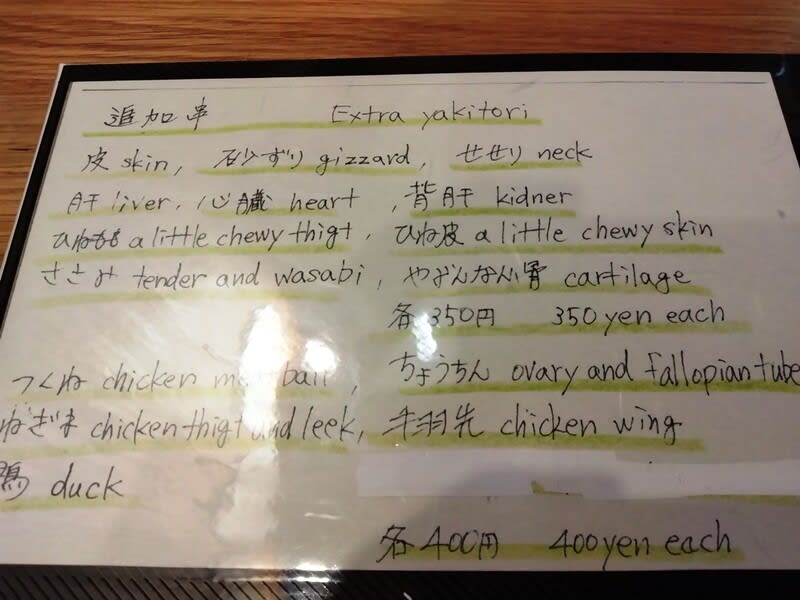 追加串 Extra yakitori
皮 skin, 砂ずり gizzard, せせり neck
肝 liver, 心臓 heart, 背肝 kidner
ひねもも a little chewy thigt, ひね皮 a little chewy skin
ささみ tender and wasabi, やげんなんこ骨 cartilage
各350円 350yen each
つくね chicken meatball, ちょうちん ovary and fallopian tube
ねぎま chicken thigt and leek, 手羽先 chicken wing
鴨 duck
各400円 400yen each